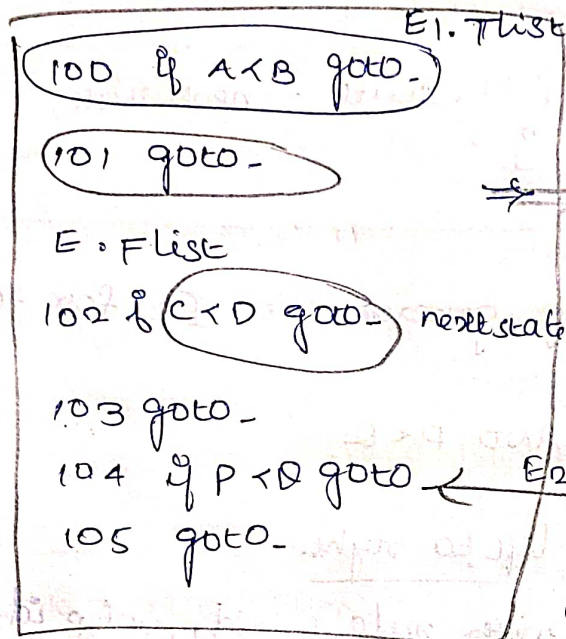 E1. Tlist
100 if A<B goto-
101 goto-
⇒
E. Flist
102 if C<D goto- next state
103 goto-
104 if P<Q goto E2
105 goto-